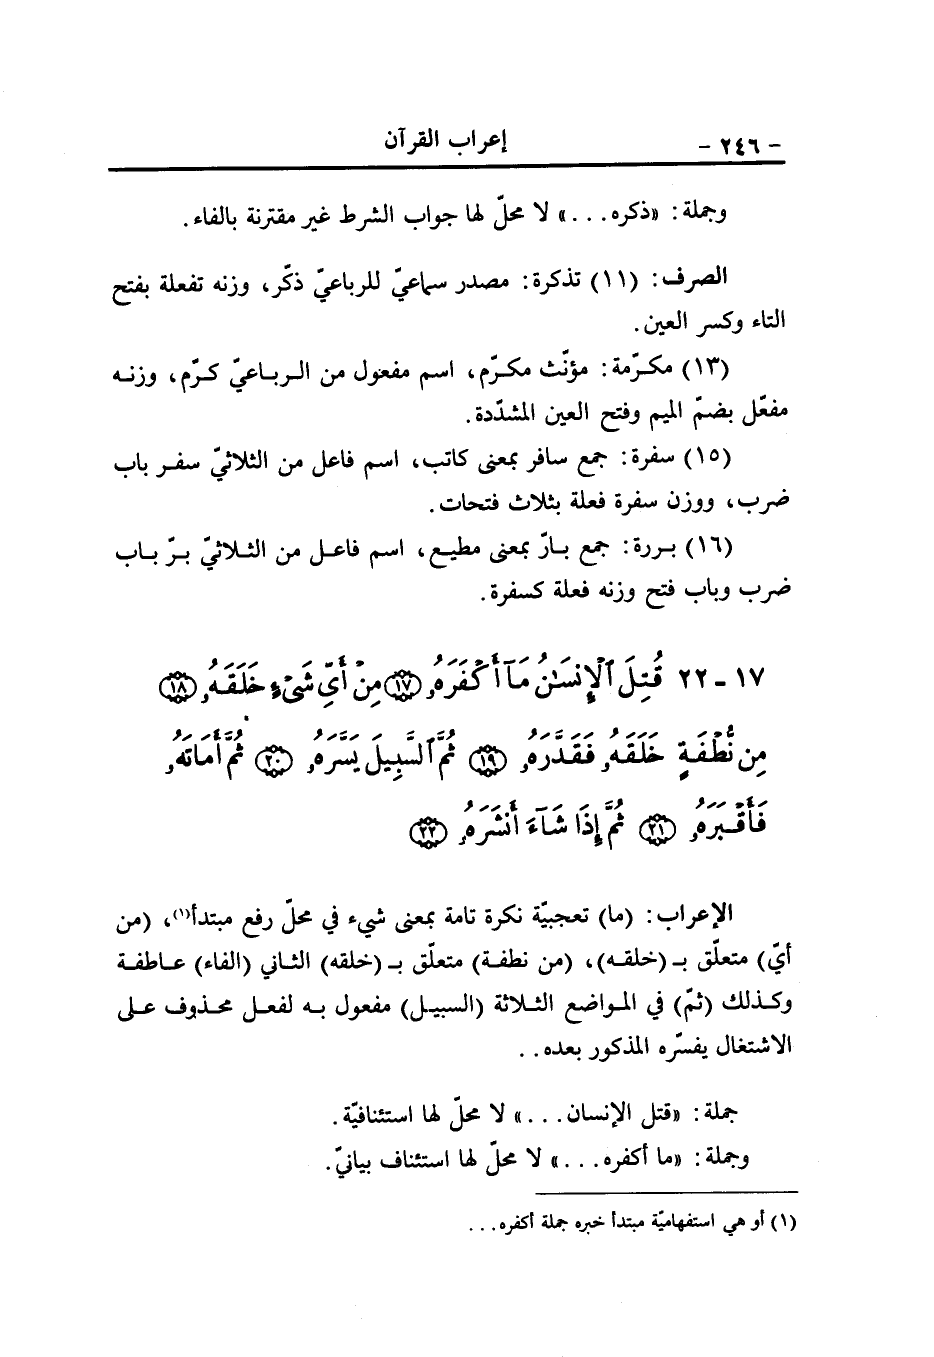 - ٢٤٦ -
إعراب القرآن
وجملة: «ذكره...» لا محلّ لها جواب الشرط غير مقترنة بالفاء.
الصرف: (١١) تذكرة: مصدر سماعيّ للرباعيّ ذكّر، وزنه تفعلة بفتح
التاء وكسر العين.
(١٣) مكرّمة: مؤنّث مكرّم، اسم مفعول من الرباعيّ كرّم، وزنه
مفعّل بضمّ الميم وفتح العين المشدّدة.
(١٥) سفرة: جمع سافر بمعنى كاتب، اسم فاعل من الثلاثيّ سفر باب
ضرب، ووزن سفرة فعلة بثلاث فتحات.
(١٦) بررة: جمع بارّ بمعنى مطيع، اسم فاعل من الثلاثيّ برّ باب
ضرب وباب فتح وزنه فعلة كسفرة.
١٧ - ٢٢ قُتِلَ ٱلْإِنسَٰنُ مَآ أَكْفَرَهُۥ ﴿١٧﴾ مِنْ أَىِّ شَىْءٍ خَلَقَهُۥ ﴿١٨﴾
مِن نُّطْفَةٍ خَلَقَهُۥ فَقَدَّرَهُۥ ﴿١٩﴾ ثُمَّ ٱلسَّبِيلَ يَسَّرَهُۥ ﴿٢٠﴾ ثُمَّ أَمَاتَهُۥ
فَأَقْبَرَهُۥ ﴿٢١﴾ ثُمَّ إِذَا شَآءَ أَنشَرَهُۥ ﴿٢٢﴾
الإعراب: (ما) تعجبيّة نكرة تامة بمعنى شيء في محلّ رفع مبتدأ(١)، (من
أيّ) متعلّق بـ (خلقه)، (من نطفة) متعلّق بـ (خلقه) الثاني (الفاء) عاطفة
وكذلك (ثمّ) في المواضع الثلاثة (السبيل) مفعول به لفعل محذوف على
الاشتغال يفسّره المذكور بعده..
جملة: «قتل الإنسان...» لا محلّ لها استئنافيّة.
وجملة: «ما أكفره...» لا محلّ لها استئناف بيانيّ.
(١) أو هي استفهاميّة مبتدأ خبره جملة أكفره...